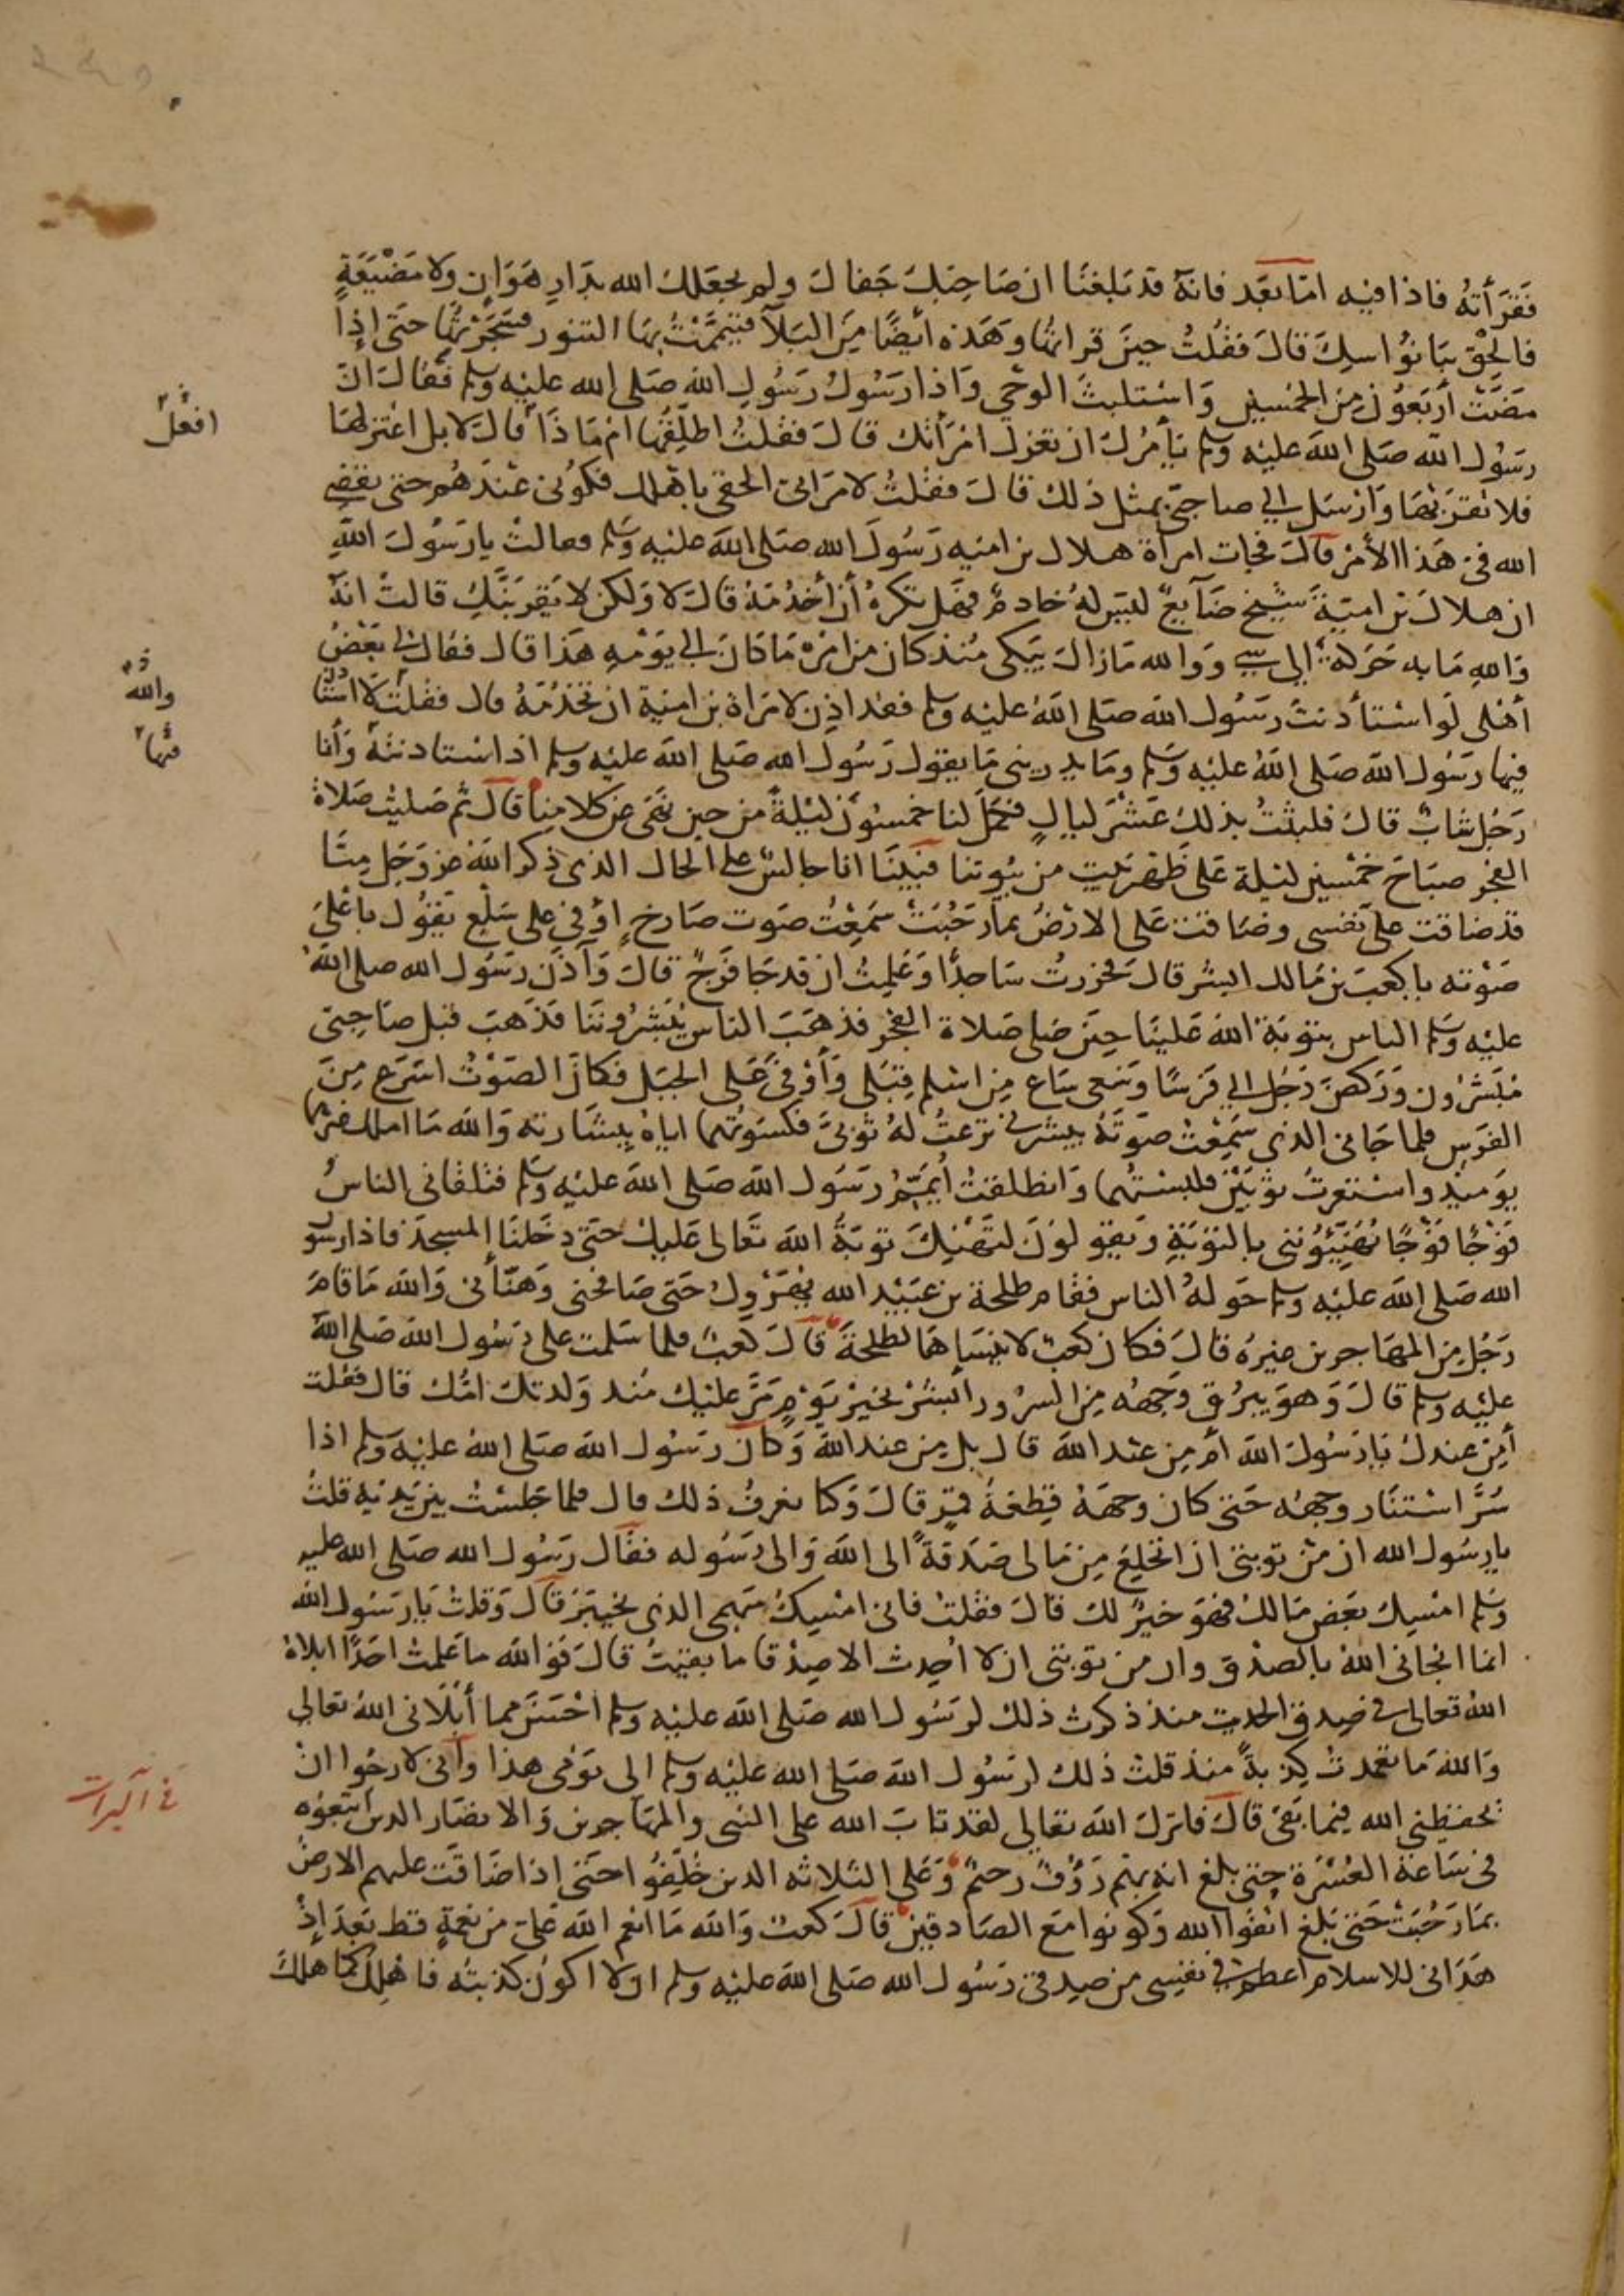 فَقَرَأتهُ فاذا فيه امّا بعَد فانهَ قد بَلغنَا ان صَاحبَكَ جَفاكَ ولم يجعَلكَ الله بدَارِ هَوَانٍ ولا مَضْيَعَةٍ
فالحَقْ بنَا نوُاسِكَ قالَ فقلتُ حينَ قراتهُا وَهَذه ايضًا مِنَ البَلآ فتيَمَّمْتُ بهَا التنور فسَجَرْتُهُا حتى إذَا
مضَت أربَعوُن مِن الخمْسين وَاسْتلبثَ الوحي وَاذا رسَوُلُ رَسُولِ الله صَلى الله عليْه وَسلم فقالَ انَّ
رسَوُل الله صَلى الله عَليْه وسلم يَأمُرُكَ ان تعتزلَ امْرَأتكَ قالَ فقلتُ اطلِّقهُا امْ مَاذَا قالَ لا بل اعْتزلهَا
فلا تقرَبنْهَا وَارْسَل الي صاحبيّ بمثل ذلكَ قالَ فقلتُ لامرَاتى الحقي باهْلك فكوُنى عنْدَهُم حتى يقضى
الله فى هَذا الأمْر قالَ فجات امرأة هلال بن اميه رَسُولَ الله صَلى الله عليْه وَسَلم فقالتْ يا رَسُولَ اللهِ
ان هلالَ بن اميّةَ شيْخ ضَآيعٌ ليسَ لهُ خادمٌ فهَل تكرهُ أن أخدُمَهُ قالَ لا وَلكن لا يَقربَنَّكِ قالتْ انهُ
وَاللهِ مَا به حَرَكة إلى شيء وَوالله مَا زالَ يَبكى مُنذ كان من امْرِهِ مَا كانَ الي يَوْمهِ هَذا قال فقالَ لي بَعْضُ
أهْلى لوَ اسْتأذنتَ رسُول الله صَلى اللهُ عليْه وسلم فقد اذِن لامرَاة بن اميّة ان تخدُمَهُ قال فقلتُ لا استأذن
فيها رسَوُل الله صَلى اللهُ عليْه وَسَلم ومَا يدرينى مَا يقول رَسُول الله صَلى الله عليْه وسلم اذا استاذنتهُ وَأنا
رَجُل شابٌ قالَ فلبثتُ بذلكَ عَشْرَ ليالٍ فكملَ لنا خمسُونَ ليْلةً من حين نهَى عَن كلامِنا قالَ ثم صَليت صَلاة
الفجر صبَاحَ خمْسين ليْلة عَلى ظَهْر بَيت من بيُوتنا فبَينَا انا جالسٌ على الحال الذى ذكر الله عز وَجَل مِنَّا
قد ضاقت علىّ نفسى وضَاقت عَلى الارْضُ بمارَحُبَتْ سَمِعْتُ صَوت صَارخ اوْفى على سَلْع يَقوُل باعْلىَ
صَوْته يا كعبَ بن مَالك ابشر قالَ فخررتُ سَاجدًا وَعَلِمتُ ان قد جَا فرَجٌ قالَ وَآذَنَ رسَوُل الله صلى اللهُ
عليْه وسَلم الناس بتوبَة الله عَلينَا حينَ صَلى صَلاة الفجر فذهَبَ الناس يُبَشرُونَنَا فذَهبَ قبل صَاحبىّ
مُبَشرُون وَرَكضَ رَجُل الي فَرَسًا وَسَعى سَاع مِن اسْلم قِبَلى وَأوْفىَ عَلى الجَبَل فكانَ الصَوْتُ اسْرَع مِنَ
الفرَسِ فلما جَانى الذى سَمِعْت صَوتهُ يبشرنى نزعتُ لهُ ثوبىَّ فكسَوتهُما اياهُ ببشَارته وَالله مَا املك غيرهما
يوَميذٍ واسْتعَرتُ ثوْبَيْن فلبستهُما وَانطلقتُ أيَمّمُ رسَوُل الله صَلى اللهَ عليْه وسَلم فتلقانى الناسُ
فوْجًا فَوْجًا يُهَنِّيُونى بالتوبَةِ وَيَقولونَ لتَهْنِكَ توبَةُ اللهَ تعَالى عَليكَ حتى دخَلنَا المسجدَ فاذا رسُو
الله صَلى الله عَليْه وسلم حَولهُ الناس فقام طلحَة بن عبَيْد الله يُهَرْولُ حَتى صَافحنى وَهنّأنى وَالله مَا قامَ
رَجُل مِن المهَاجرين غيرُهُ قالَ فكان كعبٌ لا ينسَاهَا لطلحَةَ قالَ كعبٌ فلما سَلمت على رَسُول الله صَلى الله
عليْه وسلم قالَ وَهوَ يبرُق وَجهُه مِن السرُور أبشرْ بخيرْ يوَْمٍ مَرَّ عليْكَ مُنذ وَلدتكَ امُّكَ قال فقلت
أمِن عندكَ يَا رَسُولَ الله أمْ مِن عنْد الله قال بل مِن عند الله وَكانَ رسَوُل الله صَلى الله عليْه وسلم اذا
سُرَّ اسْتنَار وجههُ حَتى كان وجههُ قِطعَةُ قمَرٍ قالَ وَكنا نعرفُ ذلك قال فلما جَلسْتُ بيْن يَديْهِ قلتُ
يا رسُول الله ان من توبتى ان انخلِعَ مِن مَالى صَدَقةً الى الله وَالى رَسُوله فقالَ رسُول الله صَلى الله عليه
وسَلم امْسِك بعَض مَالكَ فهَوَ خيرٌ لكَ قالَ فقلتُ فانى امْسِكُ سَهمى الذى بخيبَرَ قالَ وَقلتُ يَا رَسُول الله
انما انجانى اللهُ بالصدْق وان من توبتى ان لا اُحِدث الا صِدْقا ما بقيتُ قالَ فوَالله ما عَلمتُ احَدًا ابلاهُ
اللهُ تعالى في صِدق الحديث منذ ذكرتُ ذلك لرَسُول الله صَلى الله عليْه وسلم احْسَنَ مما أبْلانى اللهُ تعالى
وَاللهَ مَا تعمدتُ كِذبةً منذ قلتُ ذلكَ لرَسُول الله صَلى الله عليْه وسلم الى يوَمى هذا وَانى لارجُوا ان
يحفظنِى الله فيما بَقىَ قالَ فانزلَ الله تعَالى لقدَ تابَ الله على النبى والمهَاجرين وَالانصَار الذين اتبَعوُه
فى سَاعَة العُسْرَة حتى بلغَ انه بهم رَؤفٌ رحيمٌ وَعَلى الثلاثه الذين خلِّفوُا حتى إذا ضَاقَت عليهم الارضُ
بمَا رَحُبَتْ حَتى بَلغ اتقوُا الله وَكونوا معَ الصَادقينَ قالَ كعبٌ وَالله مَا انعم الله عَلىّ من نعمَةٍ قط بَعدَ إذْ
هَدَانى للاسلام اعظم فى نفسِى من صِدقى رَسُول الله صَلى الله عليْه وسلم ان لا اكوُن كذبته فاهْلكَ كما هلك
افعَل
والله
منها